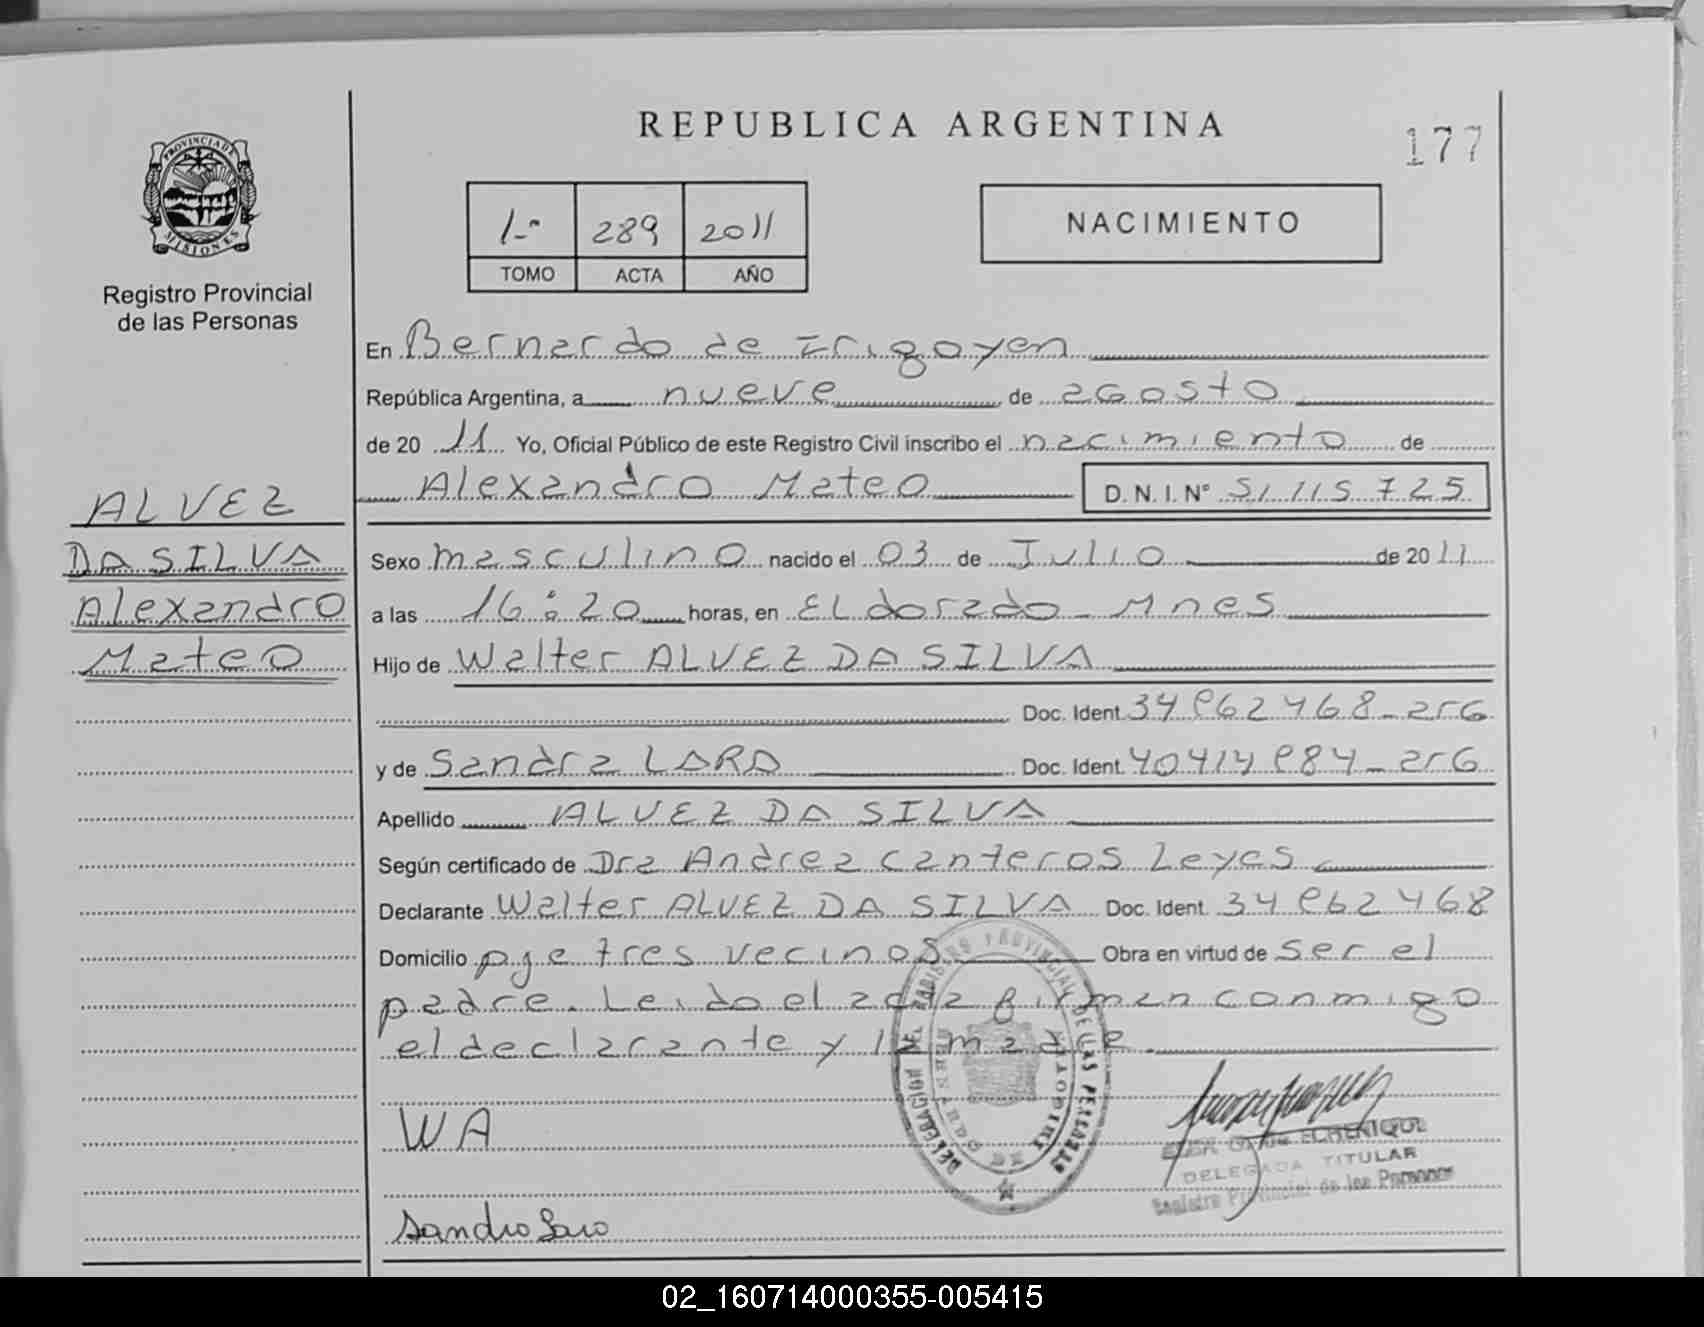 REPUBLICA ARGENTINA
177
PROVINCIA DE MISIONES
Registro Provincial
de las Personas
1-º 289 2011
TOMO ACTA AÑO
NACIMIENTO
En Bernardo de Irigoyen
República Argentina, a nueve de agosto
de 20 11 Yo, Oficial Público de este Registro Civil inscribo el nacimiento de
Alexandro Mateo D. N. I. Nº 51 115 725
ALVEZ
DA SILVA
Alexandro
Mateo
Sexo masculino nacido el 03 de Julio de 2011
a las 16:20 horas, en ELdorado - Mnes
Hijo de Walter ALVEZ DA SILVA
Doc. Ident. 34 962 468 - arG
y de Sandra LARA Doc. Ident. 40414 984 - arG
Apellido ALVEZ DA SILVA
Según certificado de Dra Andrea Canteros Leyes
Declarante Walter ALVEZ DA SILVA Doc. Ident. 34 962 468
Domicilio pje tres vecinos Obra en virtud de ser el
padre. Leido el acta firman conmigo
el declarante y la madre.
WA
DELEGADA TITULAR
Registro Provincial de las Personas
02_160714000355-005415